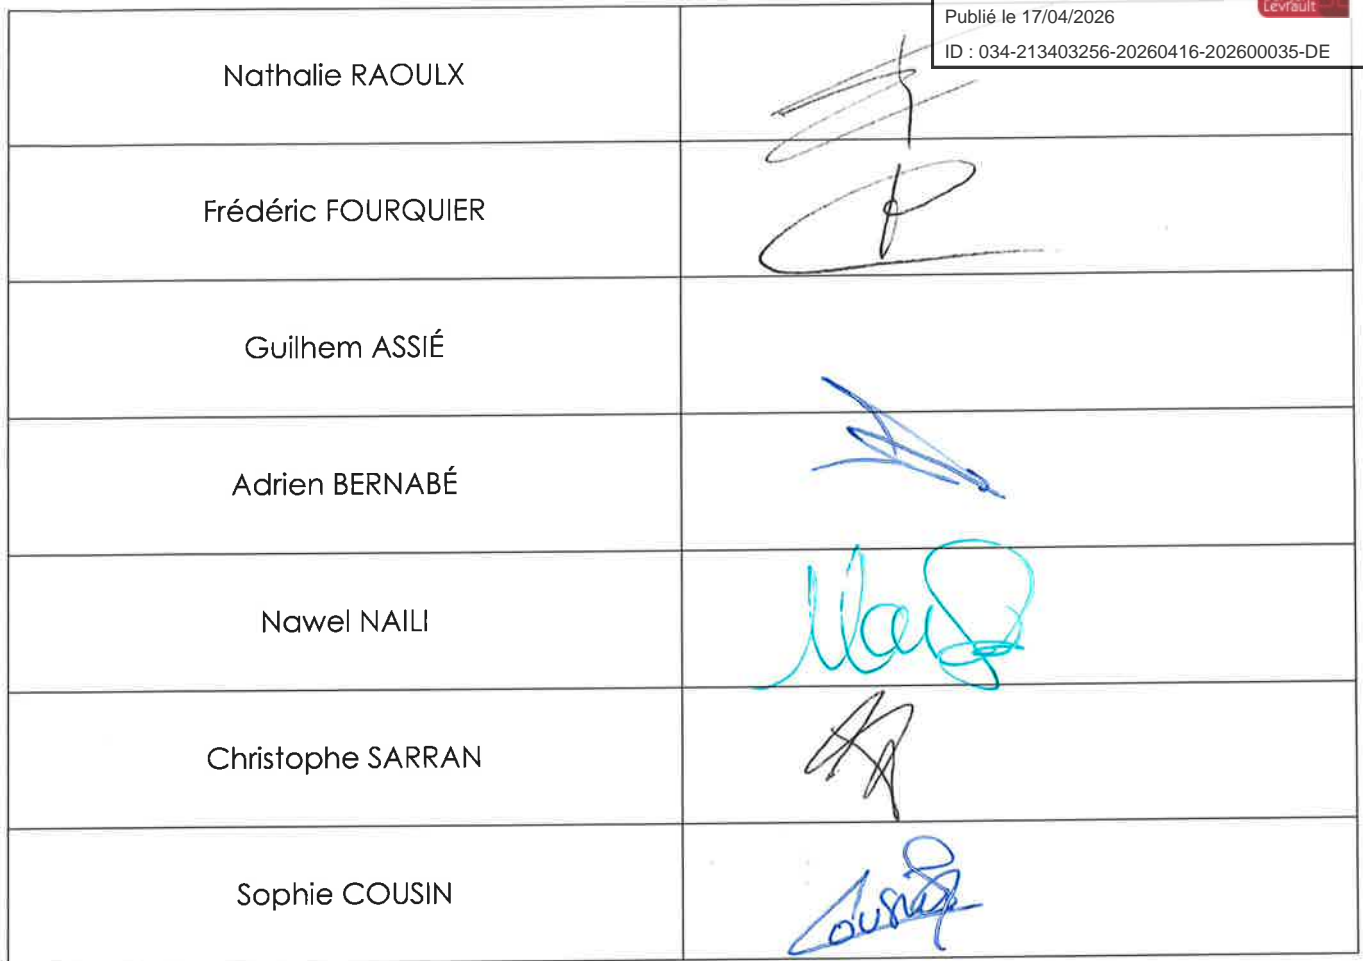 Levrault
Publié le 17/04/2026
ID : 034-213403256-20260416-202600035-DE
Nathalie RAOULX
Frédéric FOURQUIER
Guilhem ASSIÉ
Adrien BERNABÉ
Nawel NAILI
Christophe SARRAN
Sophie COUSIN
Cousin